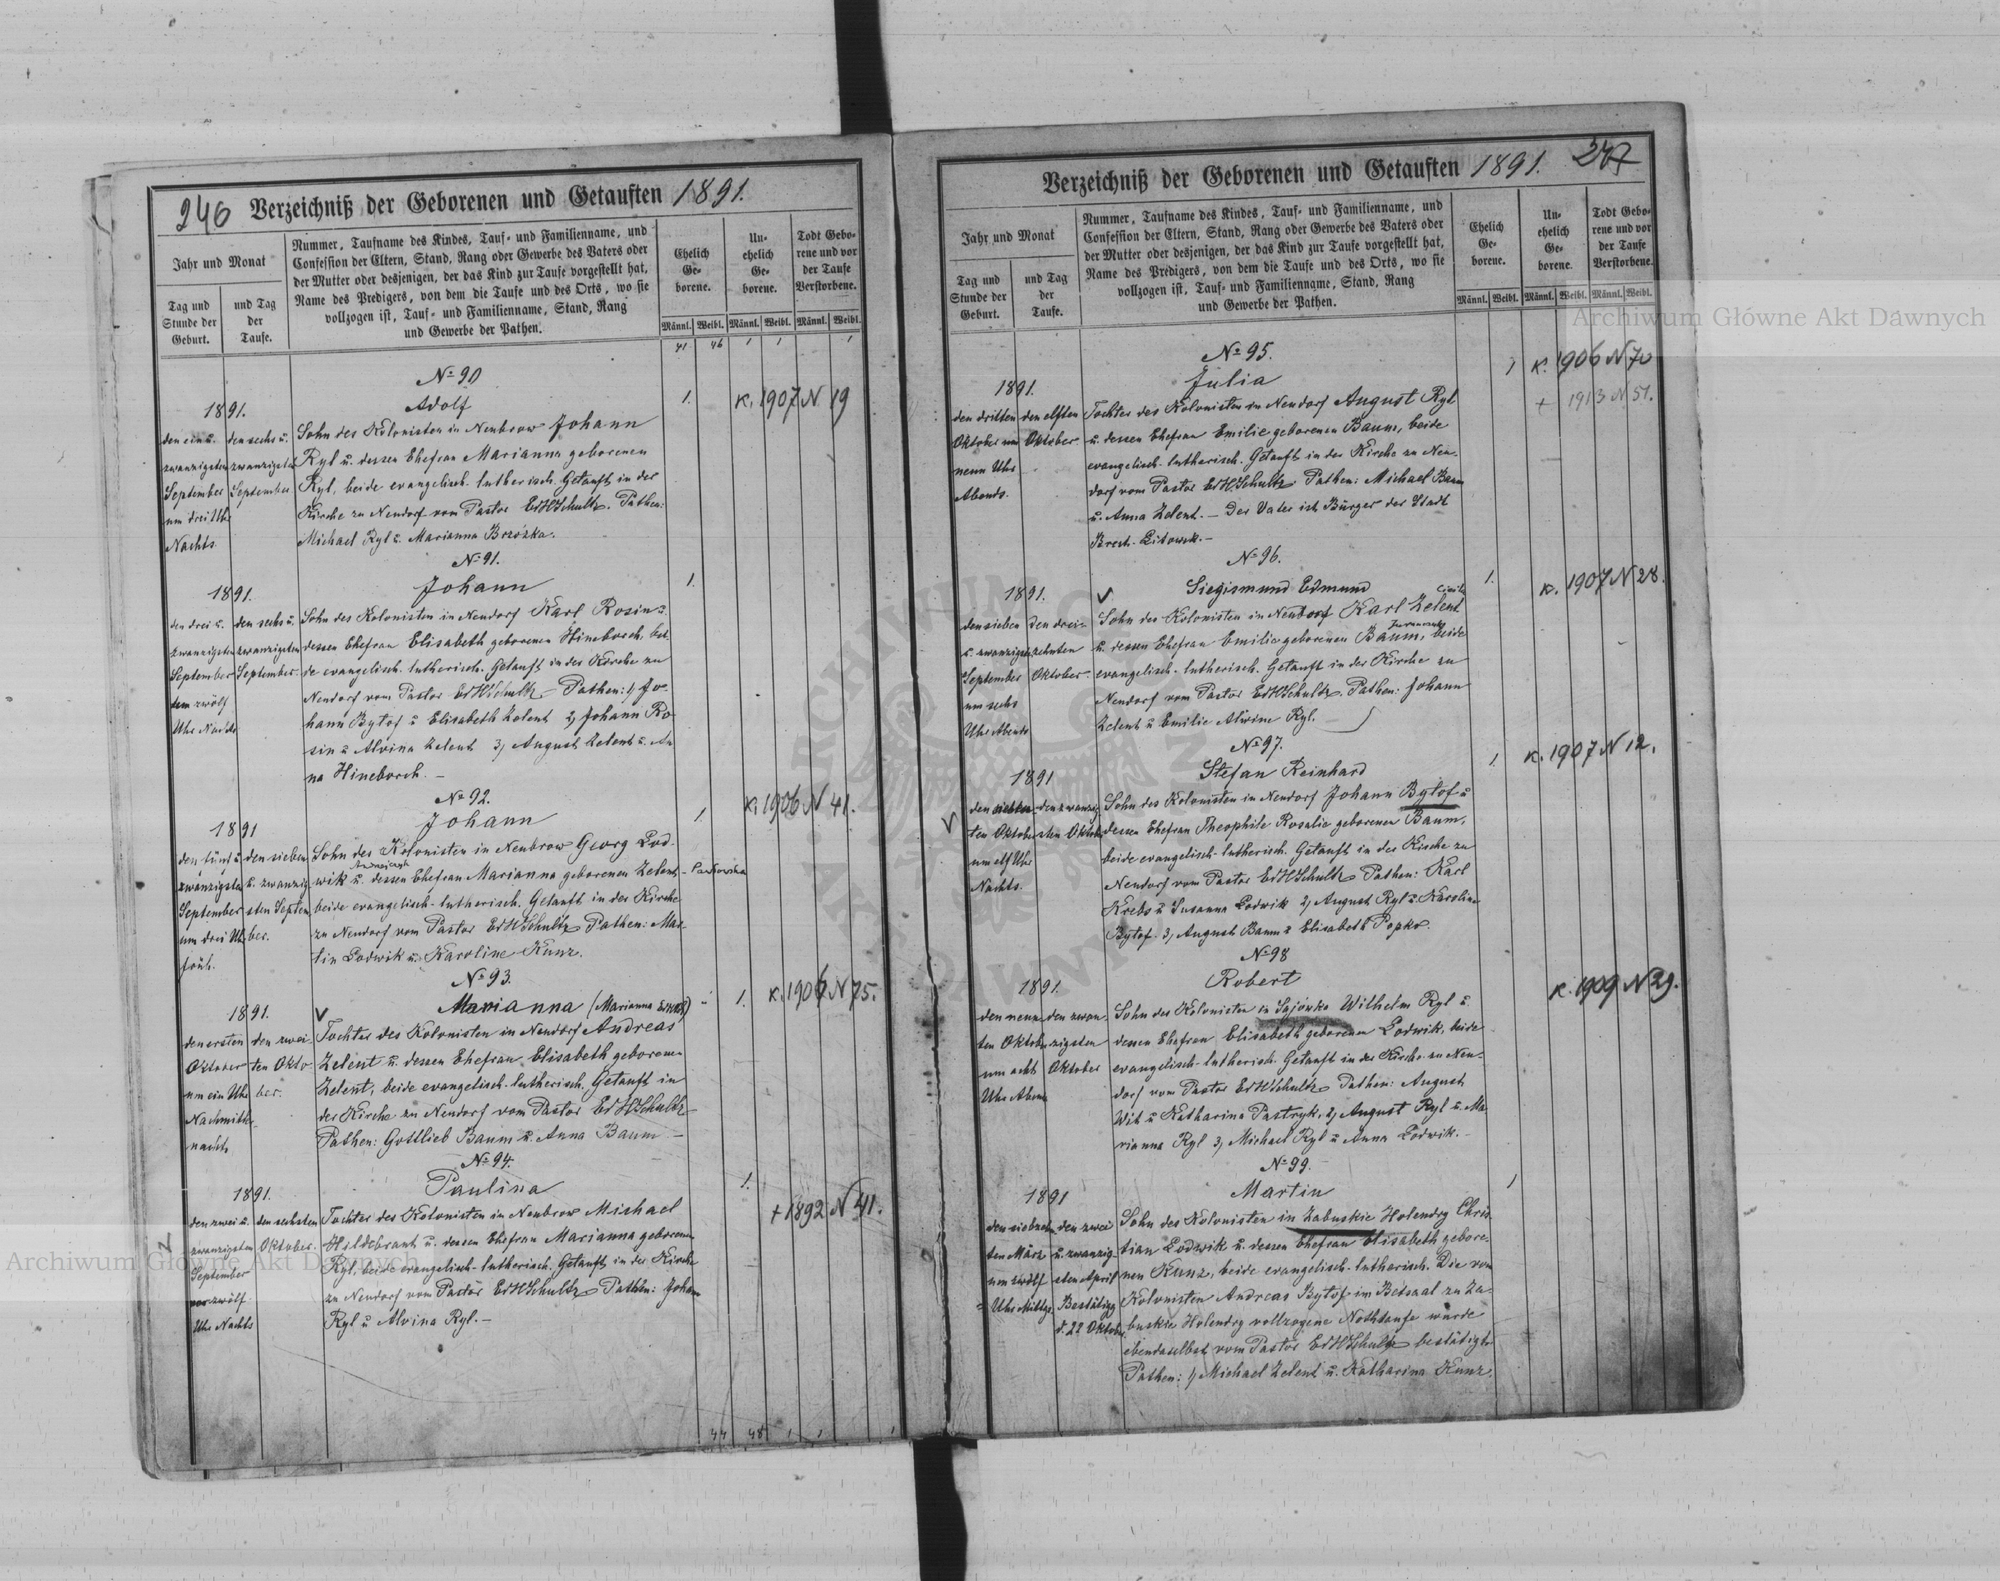 246 Verzeichniß der Geborenen und Getauften 1891.
Jahr und Monat
Tag und Stunde der Geburt.
und Tag der Taufe.
Nummer, Taufname des Kindes, Tauf- und Familienname, und
Confession der Eltern, Stand, Rang oder Gewerbe des Vaters oder
der Mutter oder desjenigen, der das Kind zur Taufe vorgestellt hat,
Name des Predigers, von dem die Taufe und des Orts, wo sie
vollzogen ist, Tauf- und Familienname, Stand, Rang
und Gewerbe der Pathen.
Ehelich Ge- borene.
Un- ehelich Ge- borene.
Todt Gebo- rene und vor der Taufe Verstorbene.
Männl. Weibl. Männl. Weibl. Männl. Weibl.
41 46 1 1 1
№ 90
Adolf
1. K. 1907 N 19
1891.
den ein u. zwanzigsten September um drei Uhr Nachts.
den sechs u. zwanzigsten September
Sohn des Kolonisten in Neubrow Johann
Ryl u. dessen Ehefrau Marianna geborenen
Ryl, beide evangelisch-lutherisch. Getauft in der
Kirche zu Neudorf vom Pastor EdHSchultz. Pathen:
Michael Ryl u. Marianna Brzózka.
№ 91.
Johann
1.
1891.
den drei u. zwanzigsten September um zwölf Uhr Nachts
den sechs u. zwanzigsten September.
Sohn des Kolonisten in Neudorf Karl Rosin u.
dessen Ehefrau Elisabeth geborenen Hineborch, bei-
de evangelisch-lutherisch. Getauft in der Kirche zu
Neudorf vom Pastor EdHSchultz – Pathen: 1, Jo-
hann Bytof u Elisabeth Zelent 2, Johann Ro-
sin u Alvina Zelent 3, August Zelent u. An
na Hineborch. –
№ 92.
Johann
1. K. 1906 N 41.
1891
den fünf u zwanzigsten September um drei Uhr früh.
den sieben u. zwanzigsten September.
Sohn des Kolonisten in Neubrow Georg Lod-
wik u. dessen Ehefrau Marianna geborenen Zelent –
beide evangelisch-lutherisch. Getauft in der Kirche
zu Neudorf vom Pastor EdHSchultz Pathen: Mar-
tin Lodwik u. Karoline Kunz.
№ 93.
Marianna (Marianna
1. K. 1906 N 75.
1891.
den ersten Oktober um ein Uhr Nachmitter- nachts
den zwei- ten Okto- ber.
Tochter des Kolonisten in Neudorf Andreas
Zelent u. dessen Ehefrau Elisabeth geborenen
Zelent, beide evangelisch-lutherisch. Getauft in
der Kirche zu Neudorf vom Pastor EdHSchultz
Pathen: Gottlieb Baum u. Anna Baum –
№ 94.
Paulina
1. + 1892 N 41.
1891.
den zwei u. zwanzigsten September vor zwölf Uhr Nachts
den sechsten Oktober.
Tochter des Kolonisten in Neubrow Michael
Hildebrant u. dessen Ehefrau Marianna geborenen
Ryl, beide evangelisch-lutherisch. Getauft in der Kirche
zu Neudorf vom Pastor EdHSchultz Pathen: Johann
Ryl u Alvina Ryl. –
44 48 1 1 1
Verzeichniß der Geborenen und Getauften 1891. 247
Jahr und Monat
Tag und Stunde der Geburt.
und Tag der Taufe.
Nummer, Taufname des Kindes, Tauf- und Familienname, und
Confession der Eltern, Stand, Rang oder Gewerbe des Vaters oder
der Mutter oder desjenigen, der das Kind zur Taufe vorgestellt hat,
Name des Predigers, von dem die Taufe und des Orts, wo sie
vollzogen ist, Tauf- und Familienname, Stand, Rang
und Gewerbe der Pathen.
Ehelich Ge- borene.
Un- ehelich Ge- borene.
Todt Gebo- rene und vor der Taufe Verstorbene.
Männl. Weibl. Männl. Weibl. Männl. Weibl.
№ 95.
Julia
1 K. 1906 N 70
+ 1913 N 51.
1891.
den dritten Oktober um neun Uhr Abends.
den elften Oktober
Tochter des Kolonisten in Neudorf August Ryl
u. dessen Ehefrau Emilie geborenen Baum, beide
evangelisch-lutherisch. Getauft in der Kirche zu Neu-
dorf vom Pastor EdHSchultz Pathen: Michael Baum
u. Anna Zelent. – Der Vater ist Bürger der Stadt
Brest-Litowsk. –
№ 96.
Siegismund Edmund
1. K. 1907 N 28.
1891.
den sieben u. zwanzigsten September um sechs Uhr Abends
den drei- zehnten Oktober
Sohn des Kolonisten in Neudorf Karl Zelent
u. dessen Ehefrau Emilie geborenen Baum, beide
evangelisch-lutherisch. Getauft in der Kirche zu
Neudorf vom Pastor EdHSchultz. Pathen: Johann
Zelent u Emilie Alwine Ryl. –
№ 97.
Stefan Reinhard
1. K. 1907 N 12.
1891
den siebten Oktober um elf Uhr Nachts.
den zwanzigsten Oktober
Sohn des Kolonisten in Neudorf Johann Bytof u
dessen Ehefrau Theophile Rosalie geborenen Baum,
beide evangelisch-lutherisch. Getauft in der Kirche zu
Neudorf vom Pastor EdHSchultz Pathen: Karl
Krebs u Susanna Lodwik 2, August Ryl u Karoline
Bytof. 3, August Baum u Elisabeth Popko.
№ 98
Robert
K. 1909 N 29.
1891.
den neun- ten Oktober um acht Uhr Abends
den zwan- zigsten Oktober
Sohn des Kolonisten in Sajówka Wilhelm Ryl u
dessen Ehefrau Elisabeth geborenen Lodwik, beide
evangelisch-lutherisch. Getauft in der Kirche zu Neu-
dorf vom Pastor EdHSchultz Pathen: August
Wit u Katharina Pastryk, 2, August Ryl u. Ma-
rianna Ryl 3, Michael Ryl u Anna Lodwik. –
№ 99.
Martin
1
1891
den siebzehn- ten März um zwölf Uhr Mittgs.
den zwei u. zwanzig- sten April Bestätigg d. 22 Oktober
Sohn des Kolonisten in Zabuskie Holendry Chris-
tian Lodwik u. dessen Ehefrau Elisabeth gebore-
nen Kunz, beide evangelisch-lutherisch. Die vom
Kolonisten Andreas Bytof im Betsaal zu Za-
buskie Holendry vollzogene Nothtaufe wurde
ebendaselbst vom Pastor EdHSchultz bestätigt.
Pathen: 1, Michael Zelent u. Katharina Kunz.
Archiwum Główne Akt Dawnych
Archiwum Główne Akt Dawnych